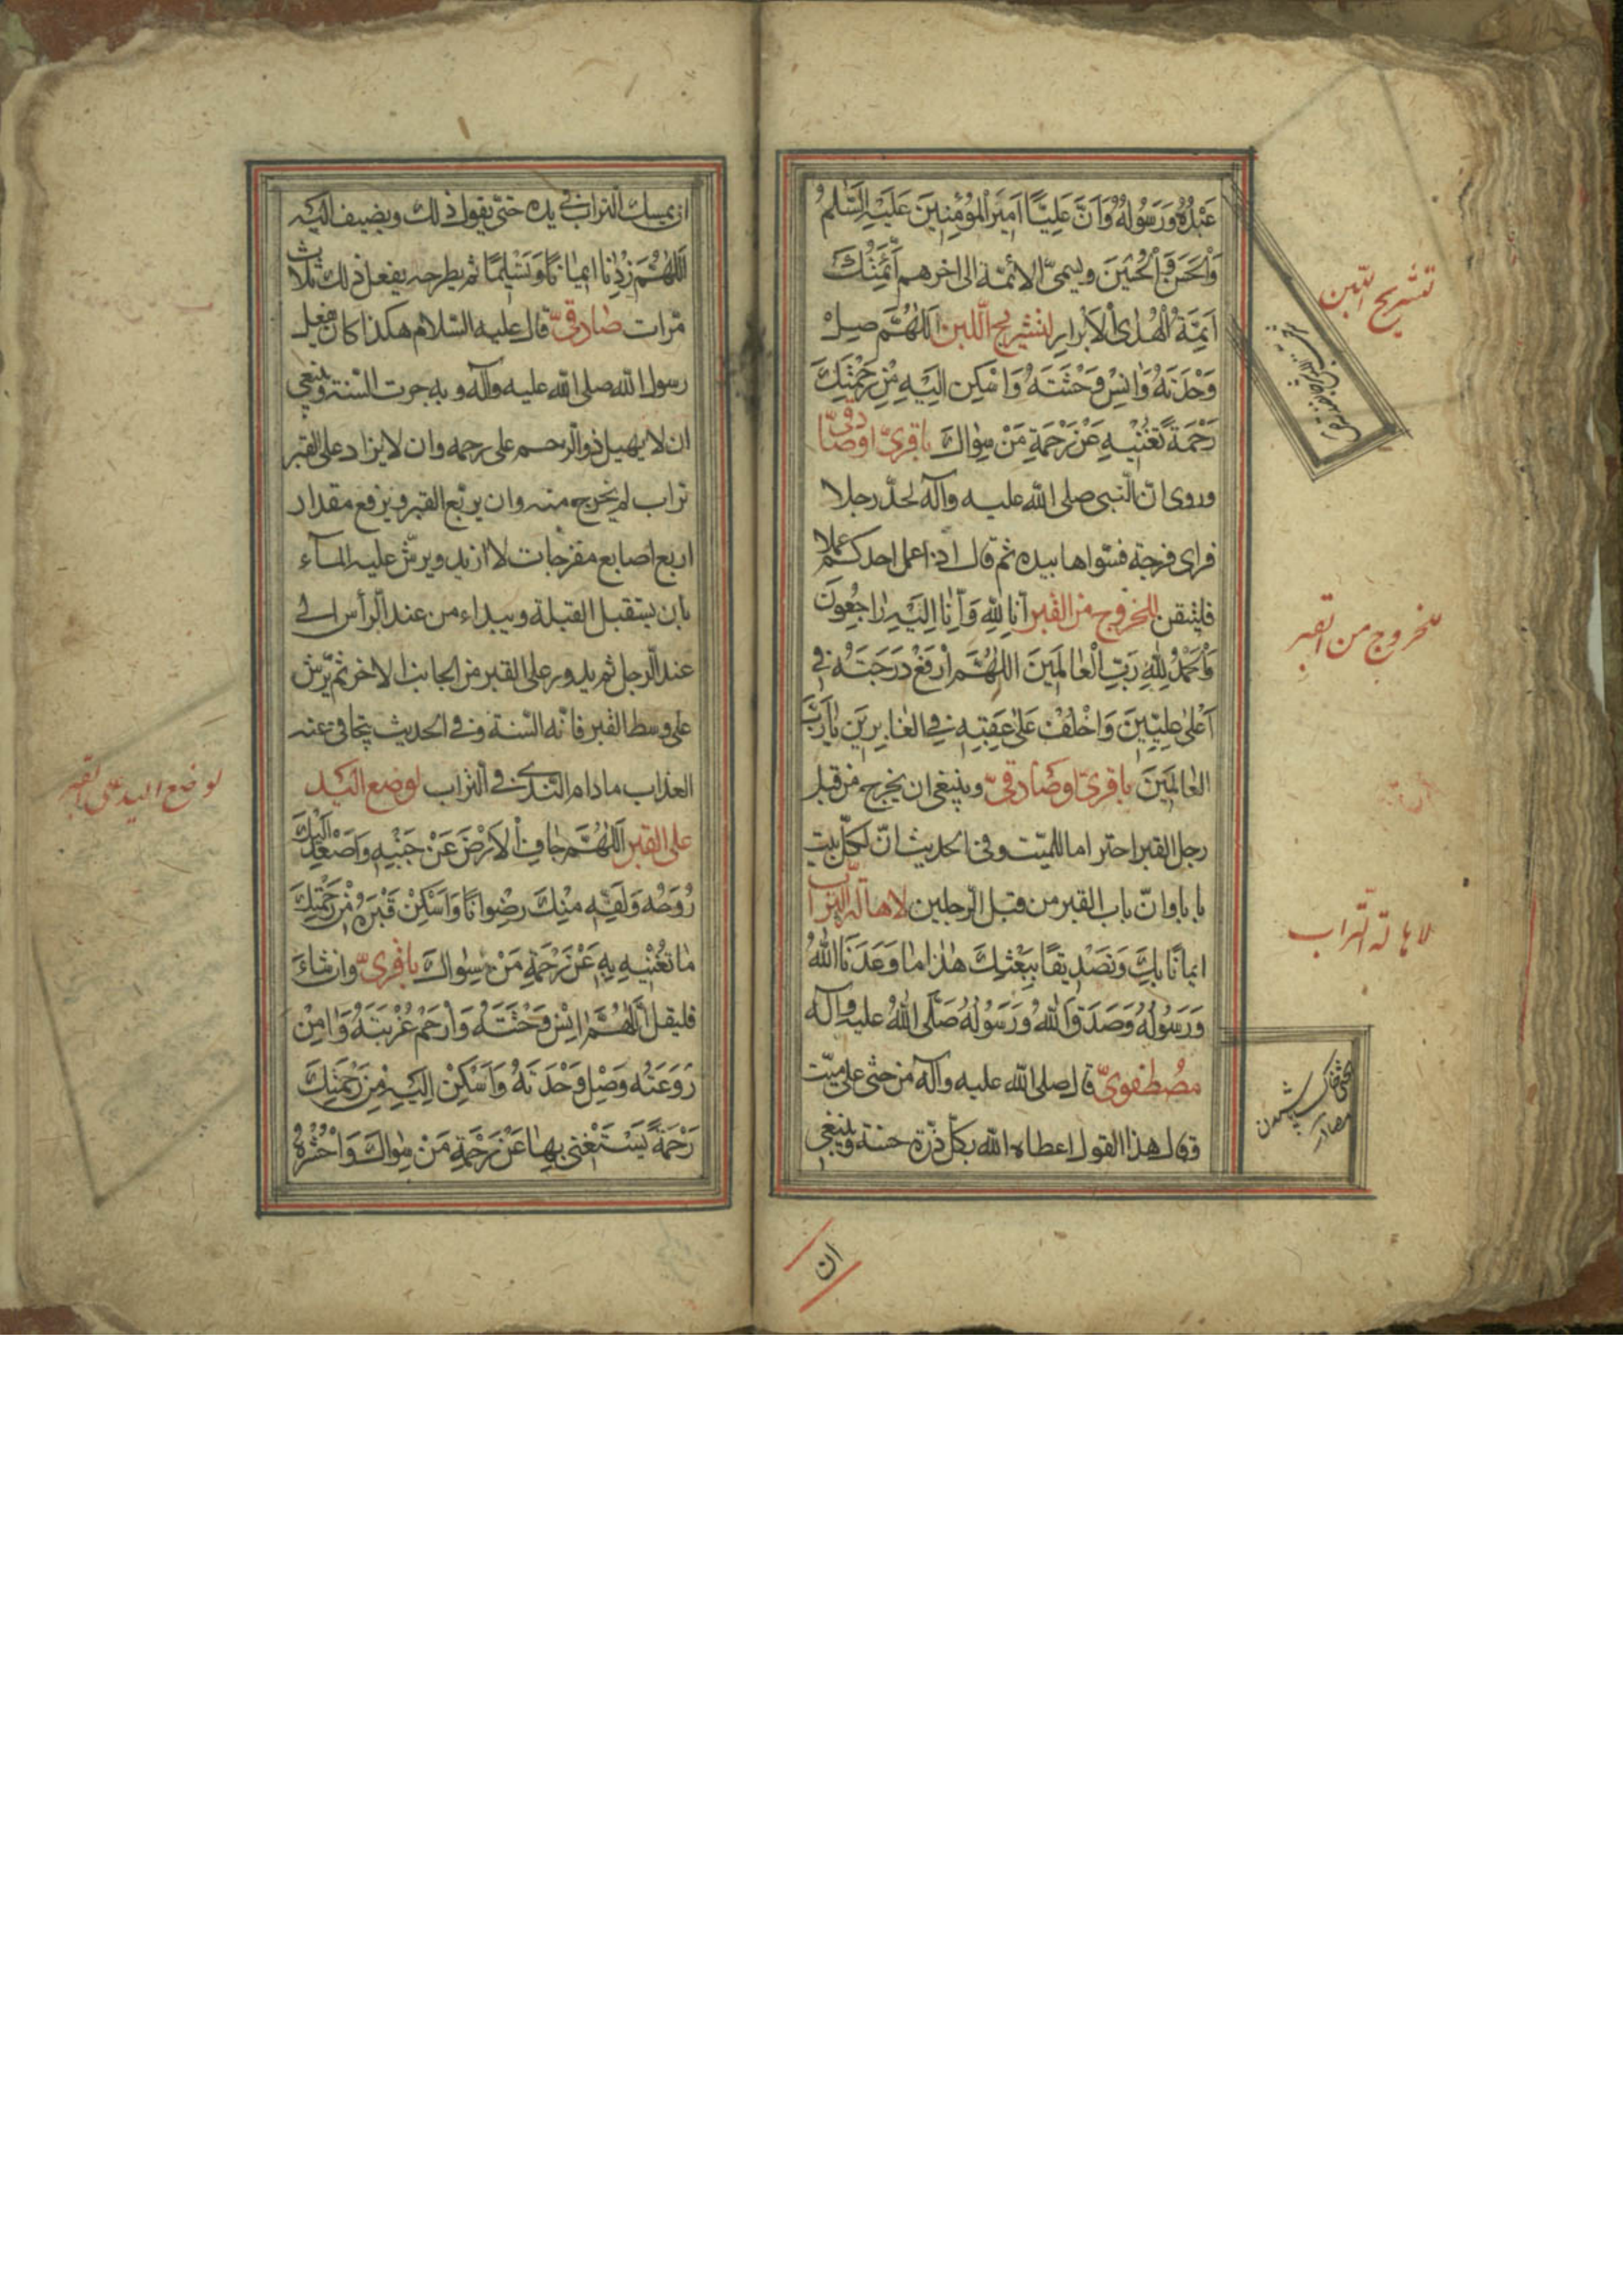 عَبْدُهُ وَرَسُولُهُ وَاَنَّ عَلِيًّا اَمِيرَ الْمُؤْمِنِينَ عَلَيْهِ السَّلٰمُ
وَالْحَسَنَ وَالْحُسَيْنَ ويسمّى الائمّة الى اخرهم اَئِمَّتُكَ
اَئِمَّةُ الْهُدٰى الْاَبْرٰارِ لتشريح اللّبن اَللّٰهُمَّ صِلْ
وَحْدَتَهُ وَاٰنِسْ وَحْشَتَهُ وَاَسْكِنْ اِلَيْهِ مِنْ رَحْمَتِكَ
رَحْمَةً تُغْنِيْهِ عَنْ رَحْمَةِ مَنْ سِوٰاكَ باقرىّ اوصادقىّ
وروى انّ النّبى صلى الله عليه وآله لحّد رجلا
فراى فرجة فسّواها بيده ثم قال اذا عمل احدكم عملا
فليتقن للخروج من القبر اِنّٰا لِلّٰهِ وَاِنّٰا اِلَيْهِ رٰاجِعُونَ
وَالْحَمْدُ لِلّٰهِ رَبِّ الْعٰالَمِينَ اَللّٰهُمَّ ارْفَعْ دَرَجَتَهُ فِى
اَعْلىٰ عِلِّيِّينَ وَاخْلُفْ عَلىٰ عَقِبِهِ فِى الْغٰابِرِينَ يٰارَبَّ
الْعٰالَمِينَ باقرىّ اوصادقىّ وينبغى ان يخرج من قبل
رجل القبر احتراما للميّت وفى الحديث انّ لكلّ بيت
بابا وانّ باب القبر من قبل الرّجلين لاهالة التّراب
اِيمٰانًا بِكَ وَتَصْدِيقًا بِبَعْثِكَ هٰذٰا مٰا وَعَدَنَا اللّٰهُ
وَرَسُولُهُ وَصَدَقَ اللّٰهُ وَرَسُولُهُ صَلَّى اللّٰهُ عليه وآله
مصطفوىّ قال صلى الله عليه وآله من حثى على ميّت
وقال هذا القول اعطاه الله بكلّ ذرّة حسنة وينبغى
تشريح اللبن
للخروج من القبر
لاهالة التراب
ان
ان يمسك التراب فى يده حتى يقول ذلك ويضيف اليه
اَللّٰهُمَّ زِدْنٰا اِيمٰانًا وَتَسْلِيمًا ثم يطرحه يفعل ذلك ثلاث
مرّات صادقىّ قال عليه السّلام هكذا كان يفعل
رسول الله صلى الله عليه وآله وبه جرت السّنة وينبغى
ان لا يهيل ذو الرّحم على رحمه وان لا يزاد على القبر
تراب لم يخرج منه وان يربّع القبر ويرفع مقدار
اربع اصابع مفرجات لا ازيد ويرشّ عليه المآء
بان يستقبل القبلة ويبداء من عند الرّأس الى
عند الرّجل ثم يدور على القبر من الجانب الاخر ثم يرّش
على وسط القبر فانّه السّنة وفى الحديث يتجافى عنه
العذاب مادام النّدى فى التّراب لوضع اليد
على القبر اَللّٰهُمَّ جٰافِ الْاَرْضَ عَنْ جَنْبِهِ وَاَصْعِدْ اِلَيْكَ
رُوحَهُ وَلَقِّهِ مِنْكَ رِضْوٰانًا وَاَسْكِنْ قَبْرَهُ مِنْ رَحْمَتِكَ
مٰا تُغْنِيْهِ بِهِ عَنْ رَحْمَةِ مَنْ سِوٰاكَ باقرىّ وان شاء
فليقل اَللّٰهُمَّ اٰنِسْ وَحْشَتَهُ وَارْحَمْ غُرْبَتَهُ وَاٰمِنْ
رَوْعَتَهُ وَصِلْ وَحْدَتَهُ وَاَسْكِنْ اِلَيْهِ مِنْ رَحْمَتِكَ
رَحْمَةً يَسْتَغْنِى بِهٰا عَنْ رَحْمَةِ مَنْ سِوٰاكَ وَاحْشُرْهُ
لوضع اليد على القبر